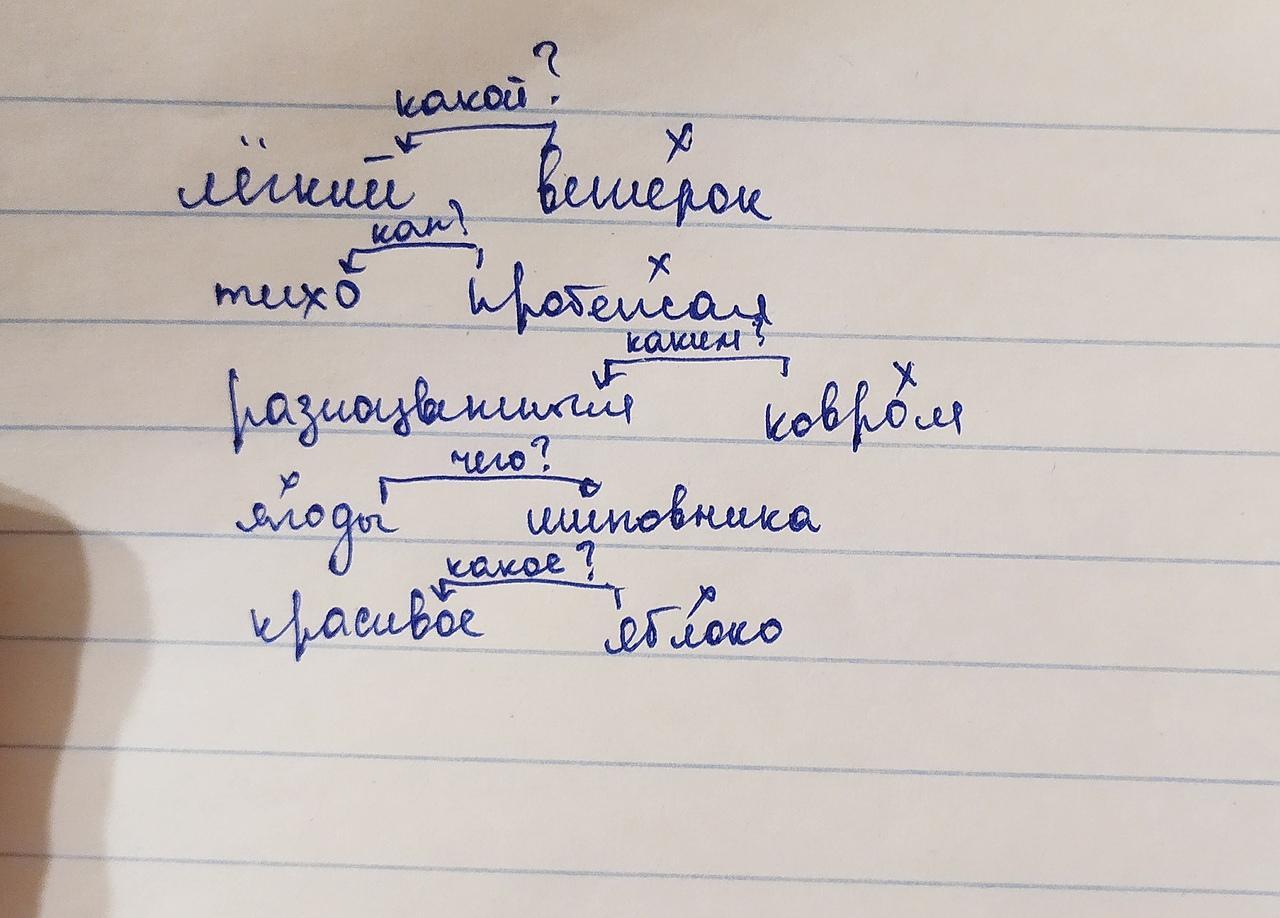 какой?
х
лёгкий ветерок
как?
х
тихо пробежал
каким?
х
разноцветным ковром
чего?
х
ягоды шиповника
какое?
х
красивое яблоко